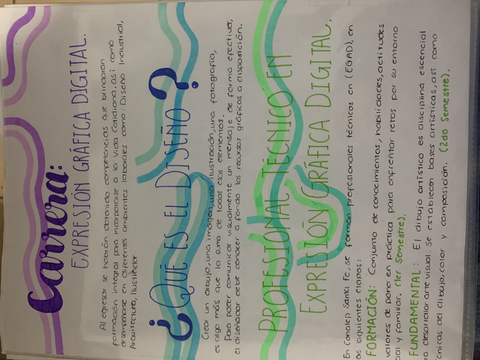 Carrera:
EXPRESIÓN GRÁFICA DIGITAL.
Al egresar se habrán obtenido competencias que brindarán
formación integral para incorporarse a la vida cotidiana, así como
desempeñarse en diferentes ambientes laborales como Diseño Industrial,
Arquitectura, Ilustrador
¿QUÉ ES EL DISEÑO?
Crear un dibujo, una imagen, una ilustración, una fotografía,
es algo más que la suma de todos esos elementos
Para poder comunicar visualmente un mensaje de forma efectiva,
el diseñador debe conocer a fondo los recursos gráficos a disposición.
PROFESIONAL TÉCNICO EN
EXPRESIÓN GRÁFICA DIGITAL.
En Conalep Santa Fe, se forman Profesionales técnicos en (EGAD), en
las siguientes etapas:
FORMACIÓN: Conjunto de conocimientos, habilidades, actitudes
valores de poner en práctica para enfrentar retos por su entorno
y familiar. (1er Semestre).
FUNDAMENTAL: El dibujo artístico es disciplina escencial
desarrollo arte visual. Se establecen bases artísticas, así como
técnicas del dibujo, color y composición. (2do Semestre).